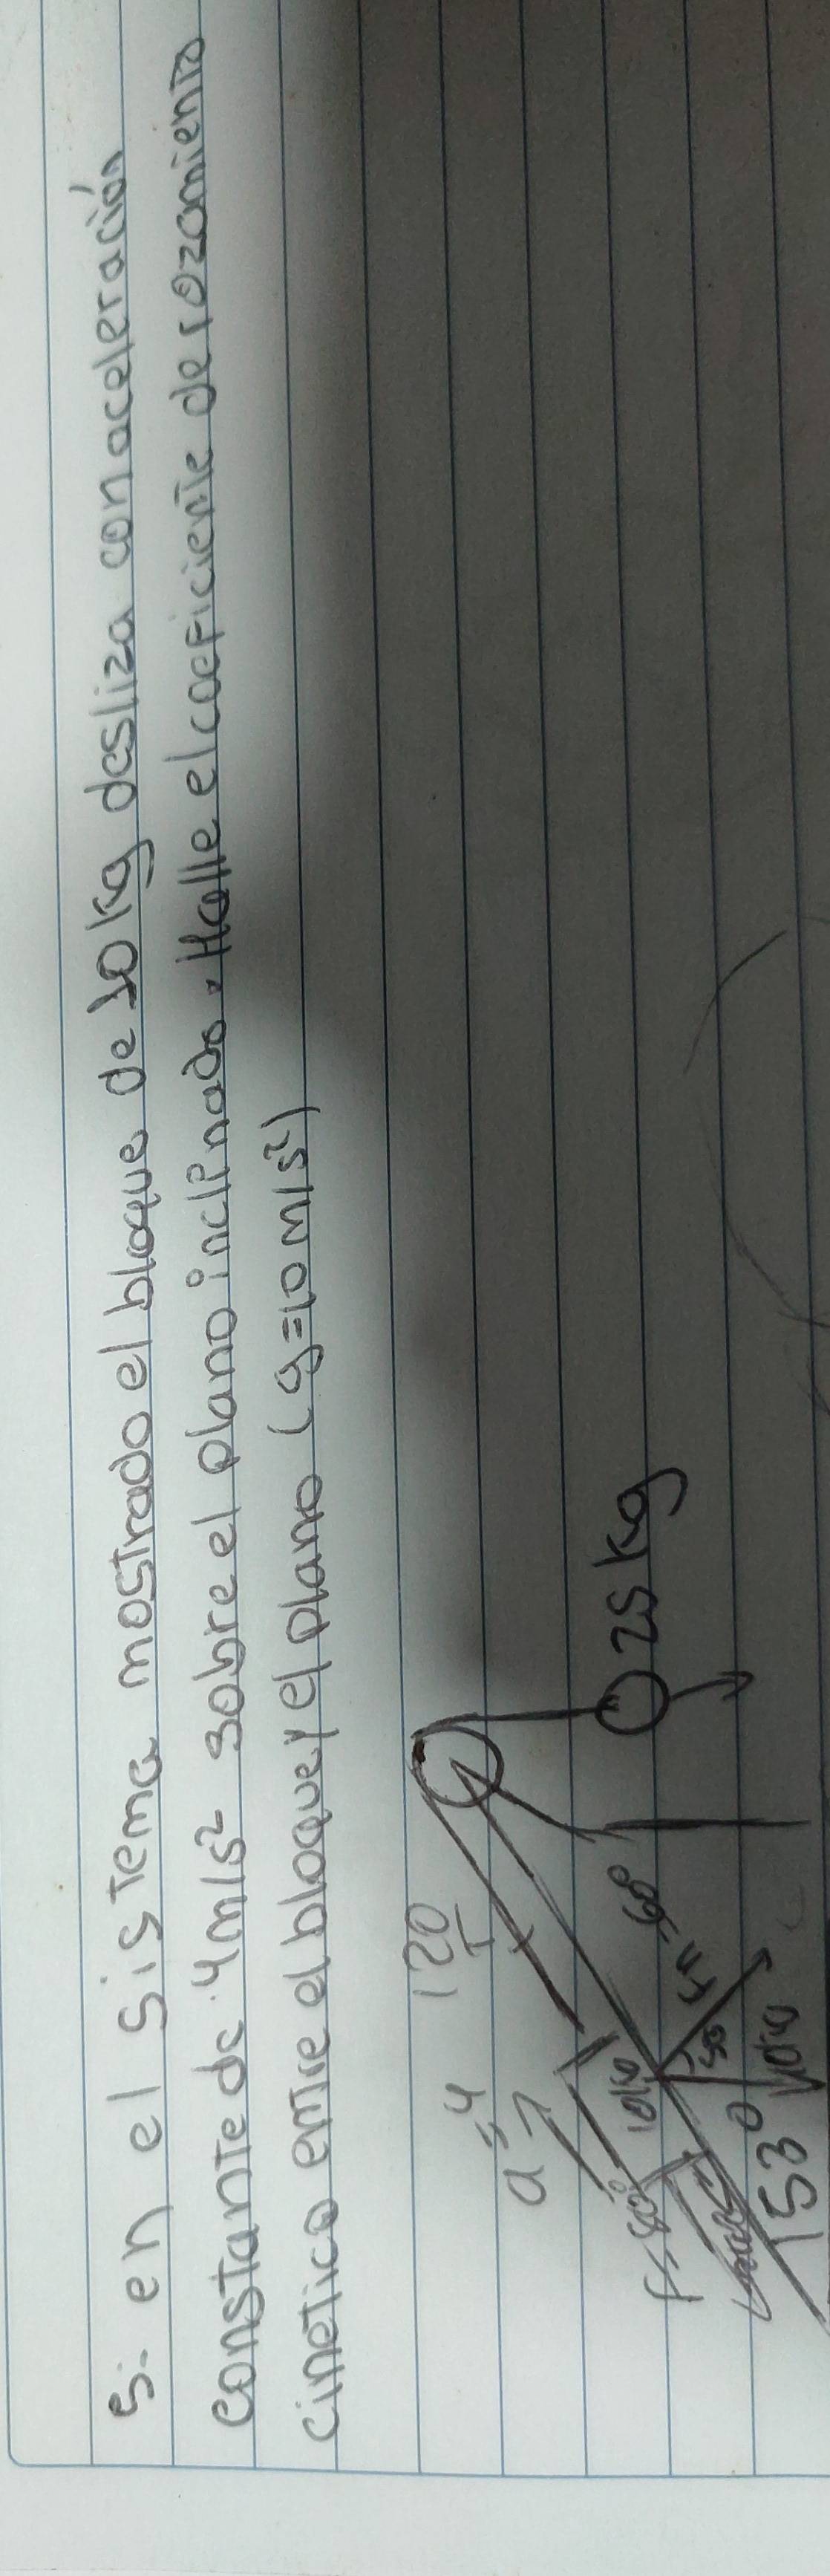 5.- en el sistema mostrado el bloque de 10 kg desliza con aceleración
constante de 4m/s² sobre el plano inclinado. Halle el coeficiente de rozamiento
cinetico entre el bloque y el plano (g=10 m/s²)
120
T
a=4
10kg
25 kg
53°